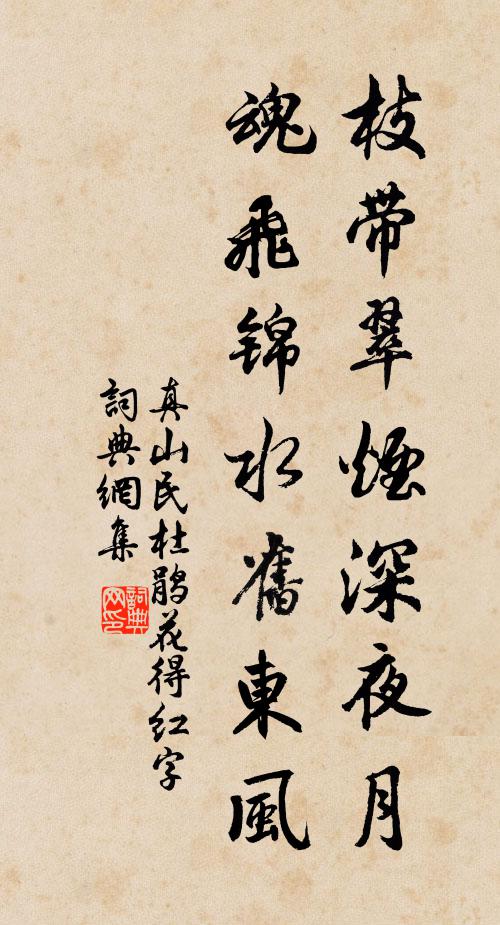 枝带翠煙深夜月
魂飛锦水舊東風
真山民杜鹃花得红字
詞典網集
詞典
网印